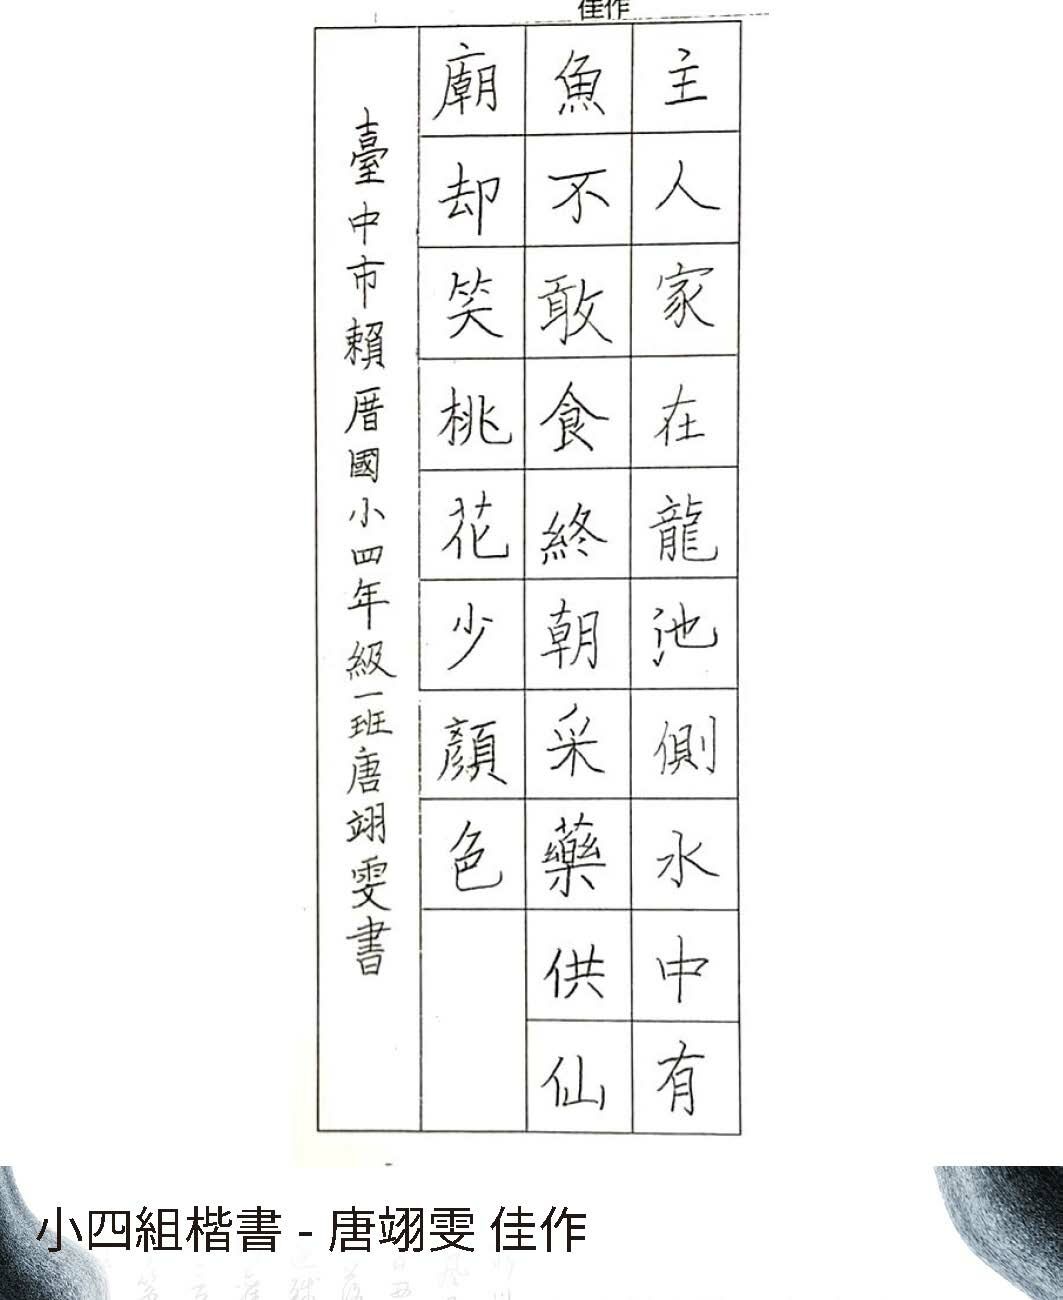 佳作
主人家在龍池側水中有
魚不敢食終朝采藥供仙
廟却笑桃花少顏色
臺中市賴厝國小四年級一班唐翊雯書
小四組楷書 - 唐翊雯 佳作